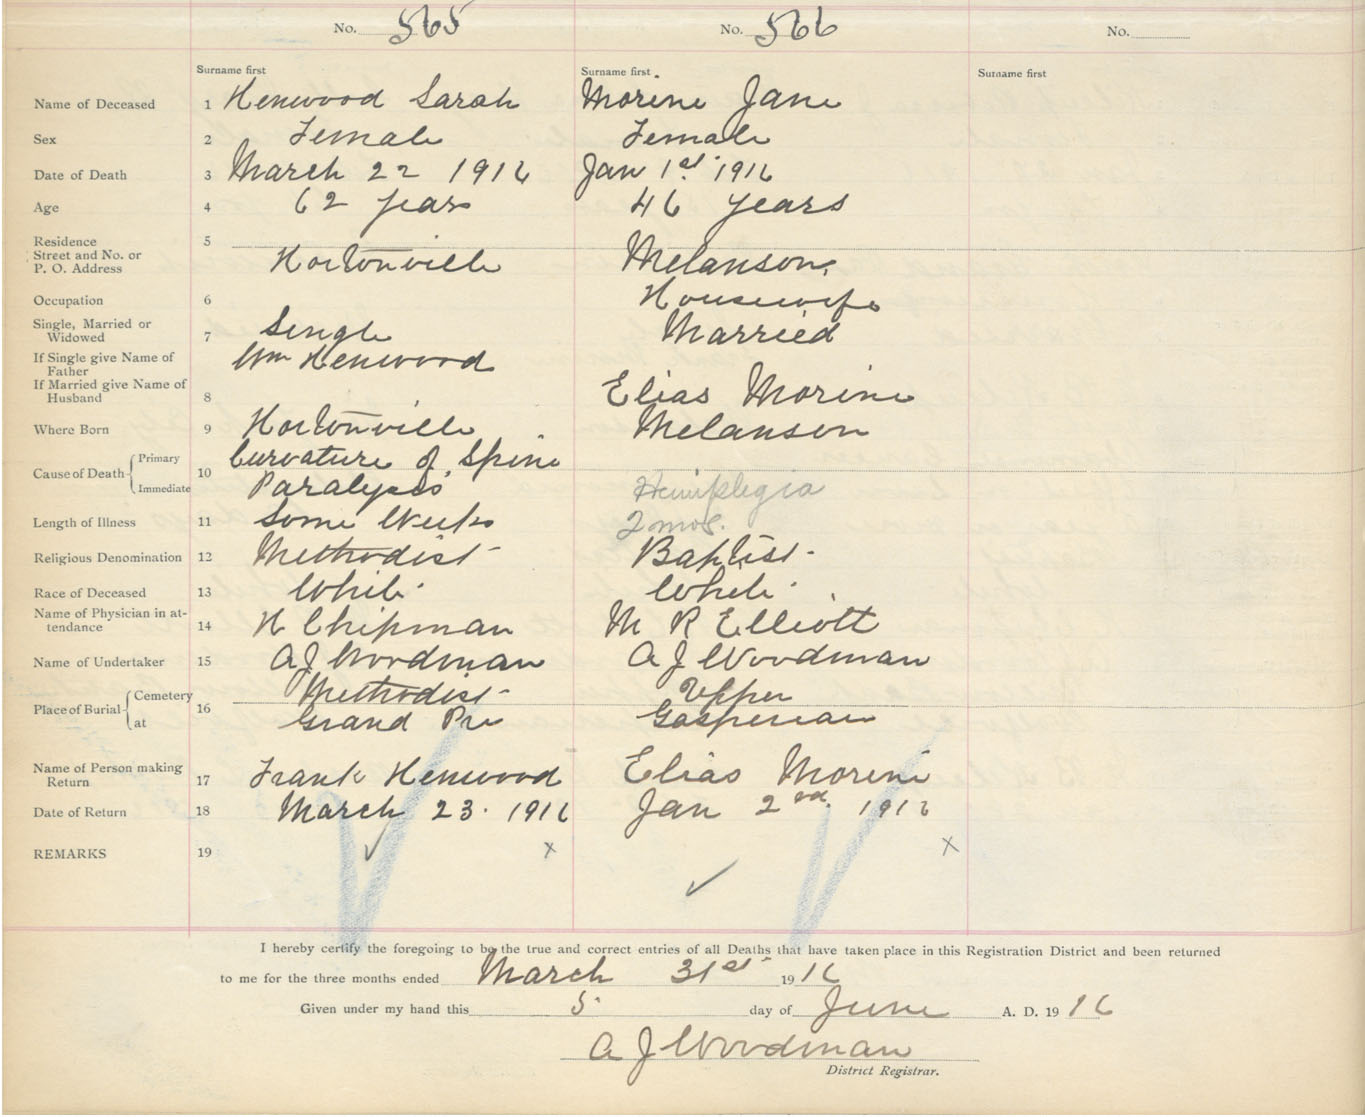 No. 565 No. 566 No.
Surname first Surname first. Surname first
Name of Deceased 1 Henwood Sarah Morine Jane
Sex 2 Female Female
Date of Death 3 March 22 1916 Jan 1st 1916
Age 4 62 years 46 years
Residence 5
Street and No. or
P. O. Address Hortonville Melanson
Occupation 6 Housewife
Single, Married or
Widowed 7 Single Married
If Single give Name of
Father Wm Henwood
If Married give Name of
Husband 8 Elias Morine
Where Born 9 Hortonville Melanson
Cause of Death 10 Primary Curvature of Spine
Immediate Paralysis Hemiplegia
Length of Illness 11 Some Weeks 2 mos.
Religious Denomination 12 Methodist Baptist
Race of Deceased 13 White White
Name of Physician in at-
tendance 14 H Chipman M R Elliott
Name of Undertaker 15 A J Woodman A J Woodman
Place of Burial 16 Cemetery Methodist Upper
at Grand Pre Gaspereau
Name of Person making
Return 17 Frank Henwood Elias Morine
Date of Return 18 March 23. 1916 Jan 2nd. 1916
REMARKS 19 x x
I hereby certify the foregoing to be the true and correct entries of all Deaths that have taken place in this Registration District and been returned
to me for the three months ended March 31st 1916
Given under my hand this 5 day of June A. D. 1916
A J Woodman
District Registrar.